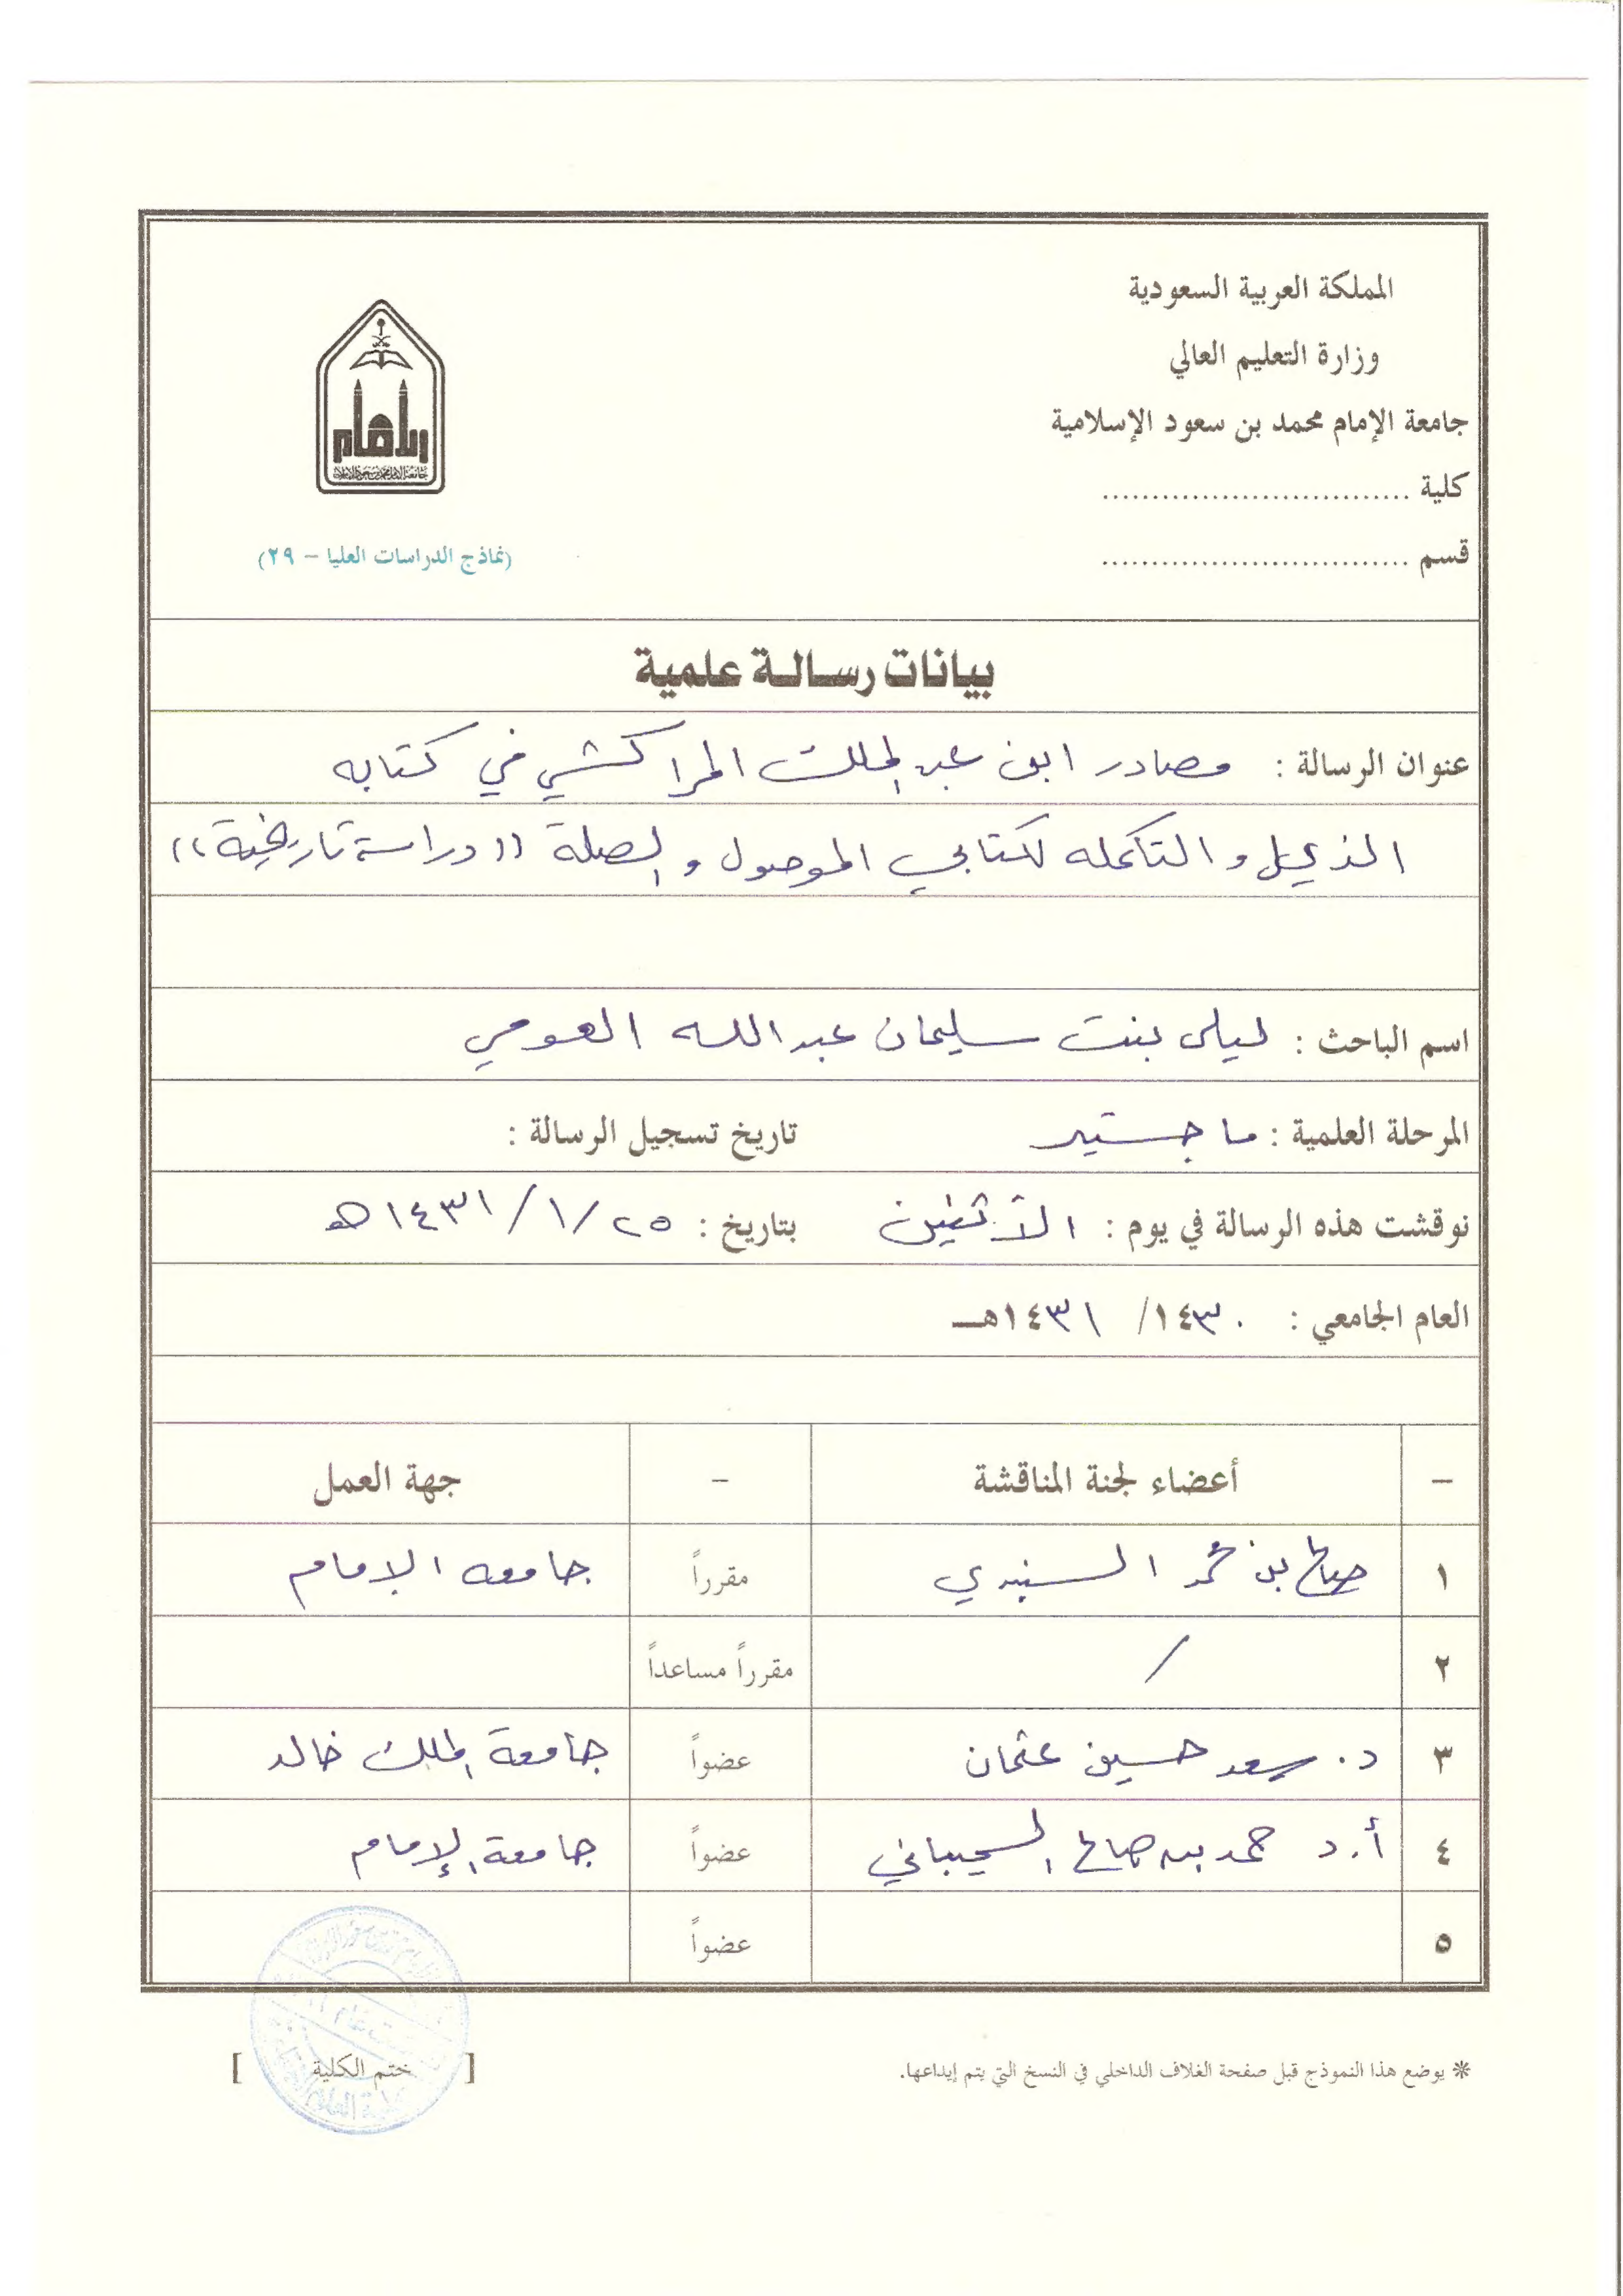 المملكة العربية السعودية
وزارة التعليم العالي
جامعة الإمام محمد بن سعود الإسلامية
كلية ..............................
قسم ..............................
الإمام
جامعة الإمام محمد بن سعود الإسلامية
(نماذج الدراسات العليا – ٢٩)
بيانات رسالة علمية
عنوان الرسالة : مصادر ابن عبد الملك المراكشي في كتابه
الذيل والتكمله لكتابي الموصول والصلة ((دراسة تاريخية))
اسم الباحث : ليلى بنت سليمان عبدالله العومي
المرحلة العلمية : ماجستير تاريخ تسجيل الرسالة :
نوقشت هذه الرسالة في يوم : الأثنين بتاريخ : ٢٥/١/١٤٣١هـ
العام الجامعي : ١٤٣٠/ ١٤٣١هـ
– أعضاء لجنة المناقشة – جهة العمل
١ صالح بن محمد السنيدي مقرراً جامعه الامام
٢ / مقرراً مساعداً
٣ د. سعد حسين عثمان عضواً جامعة الملك خالد
٤ أ.د حمد بن صالح السحيباني عضواً جامعة الإمام
٥ عضواً
* يوضع هذا النموذج قبل صفحة الغلاف الداخلي في النسخ التي يتم إيداعها.
[ ختم الكلية ]